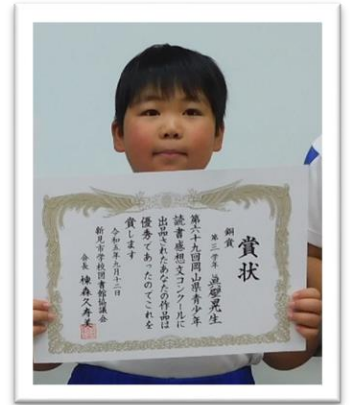 賞状
銅賞
第三学年
晃生
第六十九回岡山県青少年
読書感想文コンクールに
出品されたあなたの作品は
優秀であったのでこれを
賞します
令和五年九月十二日
新見市学校図書館協議会
会長 棟森久寿美